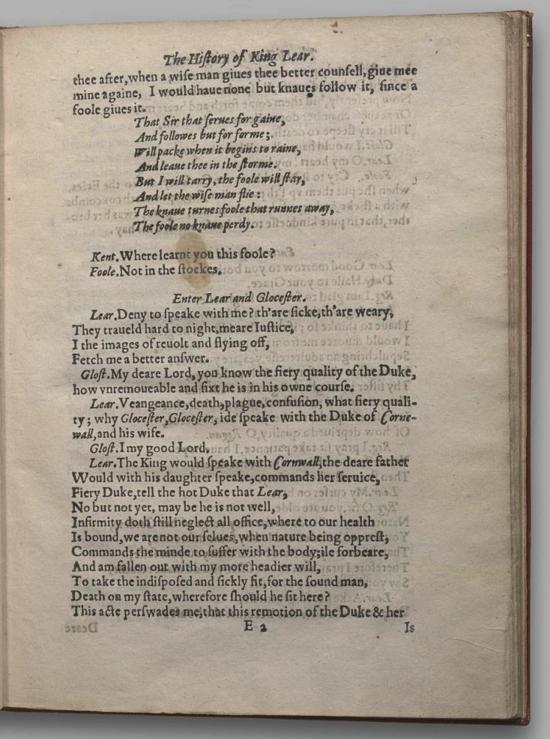 The Hiſtory of King Lear.
thee after, when a wiſe man giues thee better counſell, giue mee
mine againe, I would haue none but knaues follow it, ſince a
foole giues it.
That Sir that ſerues for gaine,
And followes but for forme;
Will packe when it begins to raine,
And leaue thee in the ſtorme.
But I will tarry, the foole will ſtay,
And let the wiſe man flie:
The knaue turnes foole that runnes away,
The foole no knaue perdy.
Kent. Where learnt you this foole?
Foole. Not in the ſtockes.
Enter Lear and Gloceſter.
Lear. Deny to ſpeake with me? th'are ſicke, th'are weary,
They traueld hard to night, meare Iuſtice,
I the images of reuolt and flying off,
Fetch me a better anſwer.
Gloſt. My deare Lord, you know the fiery quality of the Duke,
how vnremoueable and fixt he is in his owne courſe.
Lear. Veangeance, death, plague, confuſion, what fiery quali-
ty; why Gloceſter, Gloceſter, ide ſpeake with the Duke of Corne-
wall, and his wife.
Gloſt. I my good Lord.
Lear. The King would ſpeake with Cornwall, the deare father
Would with his daughter ſpeake, commands her ſeruice,
Fiery Duke, tell the hot Duke that Lear,
No but not yet, may be he is not well,
Infirmity doth ſtill neglect all office, where to our health
Is bound, we are not our ſelues, when nature being oppreſt,
Commands the minde to ſuffer with the body; ile forbeare,
And am fallen out with my more headier will,
To take the indiſpoſed and ſickly fit, for the ſound man,
Death on my ſtate, wherefore ſhould he ſit here?
This acte perſwades me, that this remotion of the Duke & her
E 2 Is